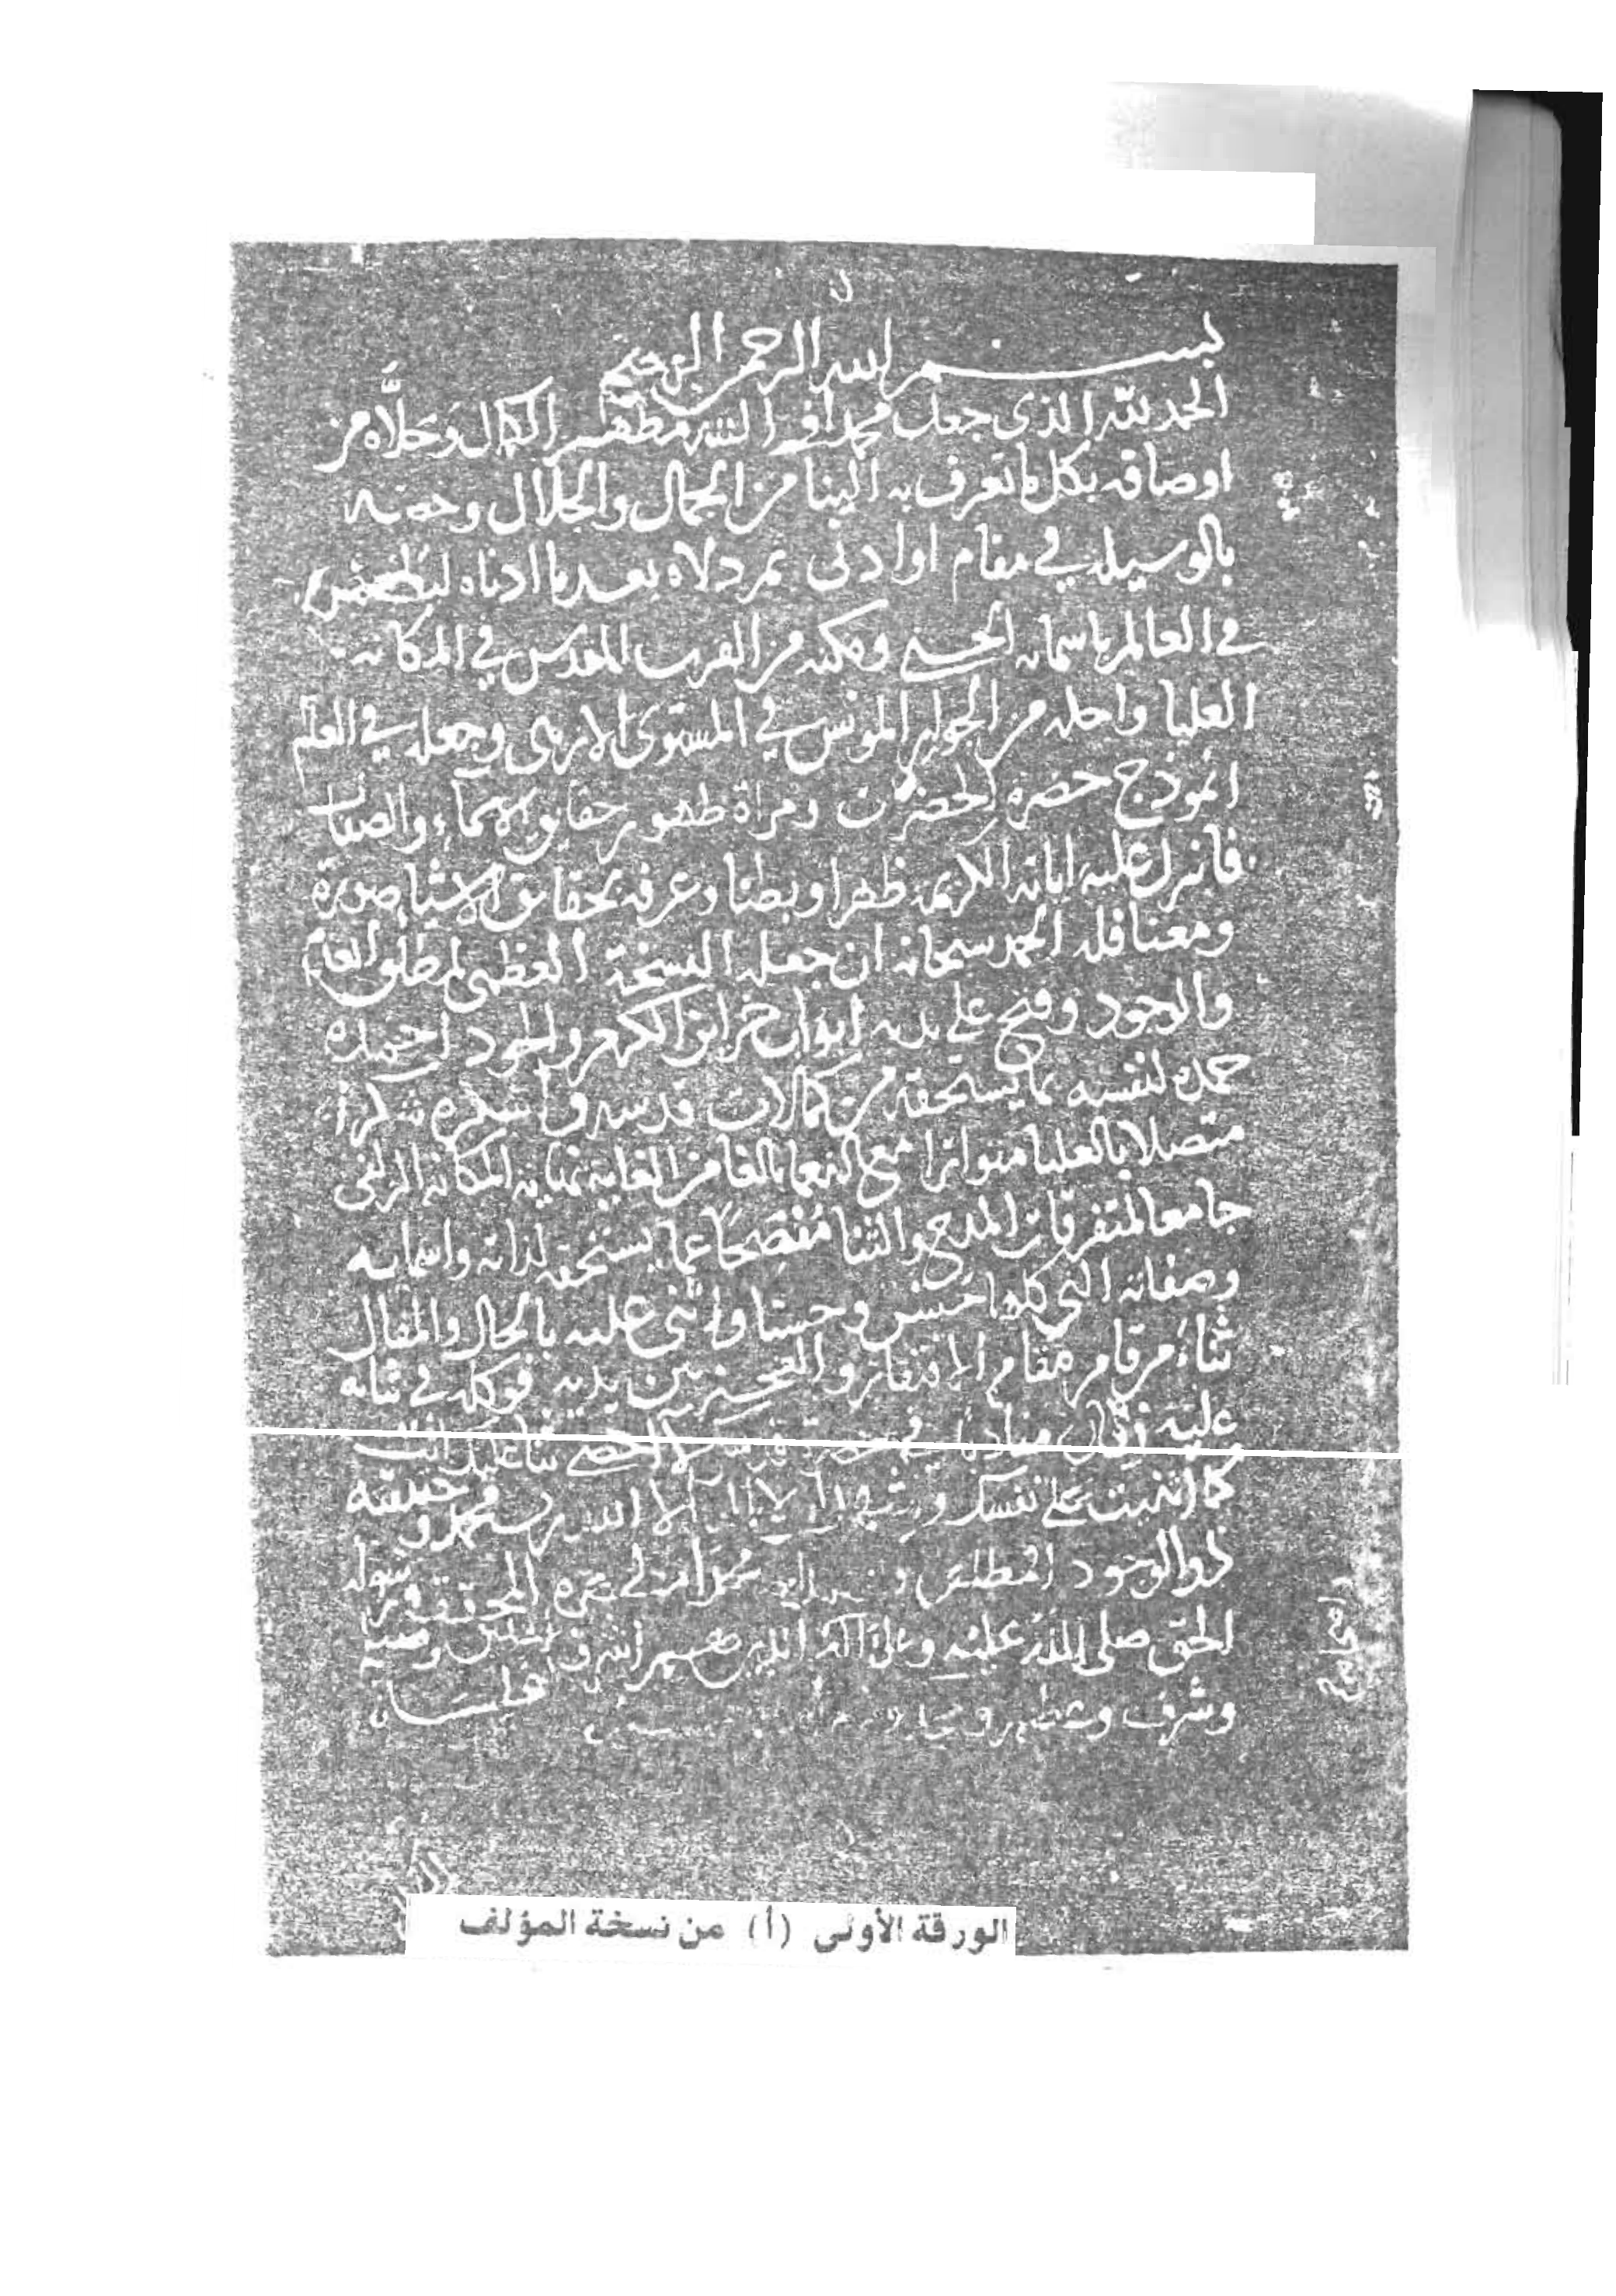 بسم الله الرحمن الرحيم
الحمد لله الذي جعل محمدا في البشر مظهر الكمال وحلاه من
اوصافه بكل ما تعرف به الينا من الجمال والجلال وخصه
بالوسيله في مقام او ادنى ثم دلاه بعد ما ادناه ليظهر
في العالم باسمائه الحسنى ومكنه من القرب المقدس في المكانه
العليا واحله من الجوار المونس في المستوى الازهى وجعله في العلم
انموذج حضرة الحضرات ومراة ظهور حقايق الاسماء والصفات
فانزل عليه اياته الكريمه ظهرا وبطنا وعرفه بحقايق الاشيا صورة
ومعنا فله الحمد سبحانه ان جعله النسخة العظمى لمطلق العلم
والوجود وفتح على يديه ابواب خزاين الكرم والجود احمده
حمده لنفسه بما يستحقه من كمالات قدسه واشكره شكرا
متصلا بالعليا متواترا مع النعما بالغا من الغاية نهاية المكانه الزلفى
جامعا لمتفرقات المدح والثنا مفصحا عما يستحقه لذاته واسمايه
وصفاته التي كلها حسن وحسنا واثنى عليه بالحال والمقال
ثناء من قام مقام الافتقار والعجز بين يديه فوكله في ثنايه
عليه لا احصي ثنا عليك انت
كما اثنيت على نفسك الا الله رب محمد وخليقته
ذو الوجود المطلق محمدا المحقق ورسوله
الحق صلى الله عليه وعلى اله
وشرف وعظم
الورقة الأولى (أ) من نسخة المؤلف